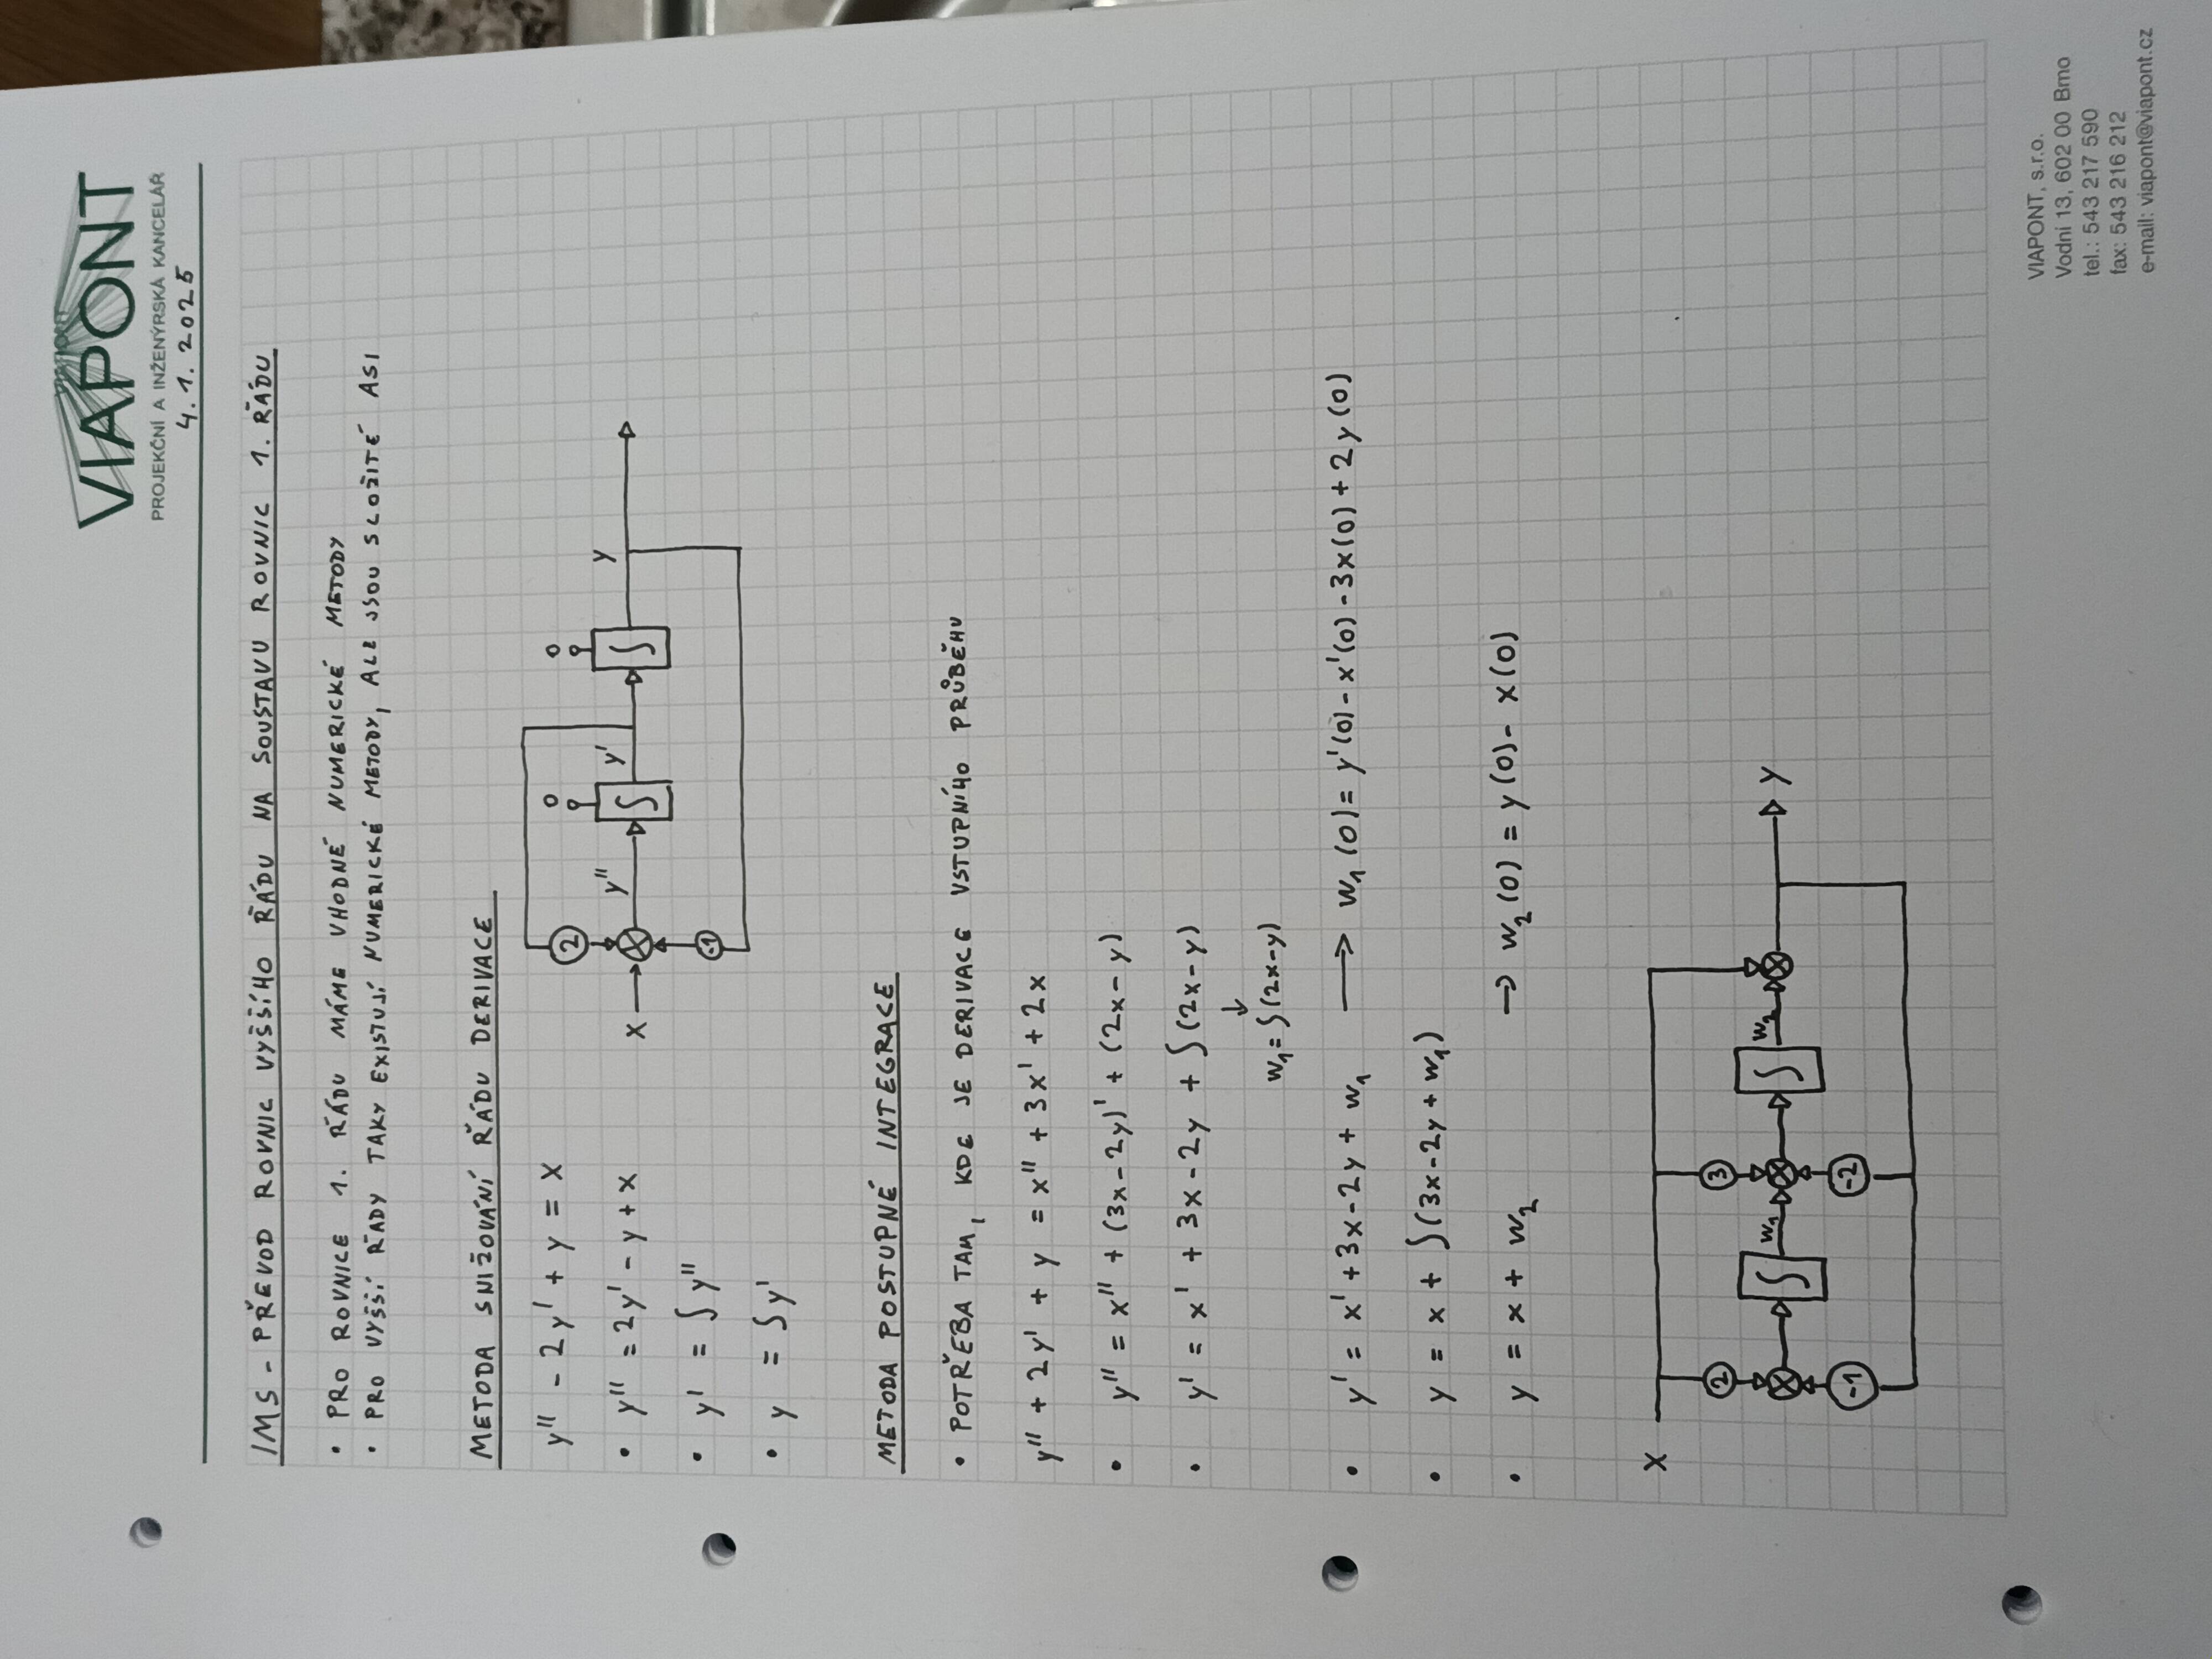 VIAPONT
PROJEKČNÍ A INŽENÝRSKÁ KANCELÁŘ
4.1.2025
IMS - PŘEVOD ROVNIC VYŠŠÍHO ŘÁDU NA SOUSTAVU ROVNIC 1. ŘÁDU
• PRO ROVNICE 1. ŘÁDU MÁME VHODNÉ NUMERICKÉ METODY
• PRO VYŠŠÍ ŘÁDY TAKY EXISTUJÍ NUMERICKÉ METODY, ALE JSOU SLOŽITÉ ASI
METODA SNIŽOVÁNÍ ŘÁDU DERIVACE
y'' - 2y' + y = x
• y'' = 2y' - y + x
• y' = ∫ y''
• y = ∫ y'
x 2 -1 y'' 0 ∫ y' 0 ∫ y
METODA POSTUPNÉ INTEGRACE
• POTŘEBA TAM, KDE JE DERIVACE VSTUPNÍHO PRŮBĚHU
y'' + 2y' + y = x'' + 3x' + 2x
• y'' = x'' + (3x - 2y)' + (2x - y)
• y' = x' + 3x - 2y + ∫(2x - y)
↓
w1 = ∫(2x-y)
• y' = x' + 3x - 2y + w1 → w1(0) = y'(0) - x'(0) - 3x(0) + 2y(0)
• y = x + ∫(3x - 2y + w1)
• y = x + w2 → w2(0) = y(0) - x(0)
x
2 3
∫ w1 ∫ w2 y
-1 -2
VIAPONT, s.r.o.
Vodní 13, 602 00 Brno
tel.: 543 217 590
fax: 543 216 212
e-mail: viapont@viapont.cz